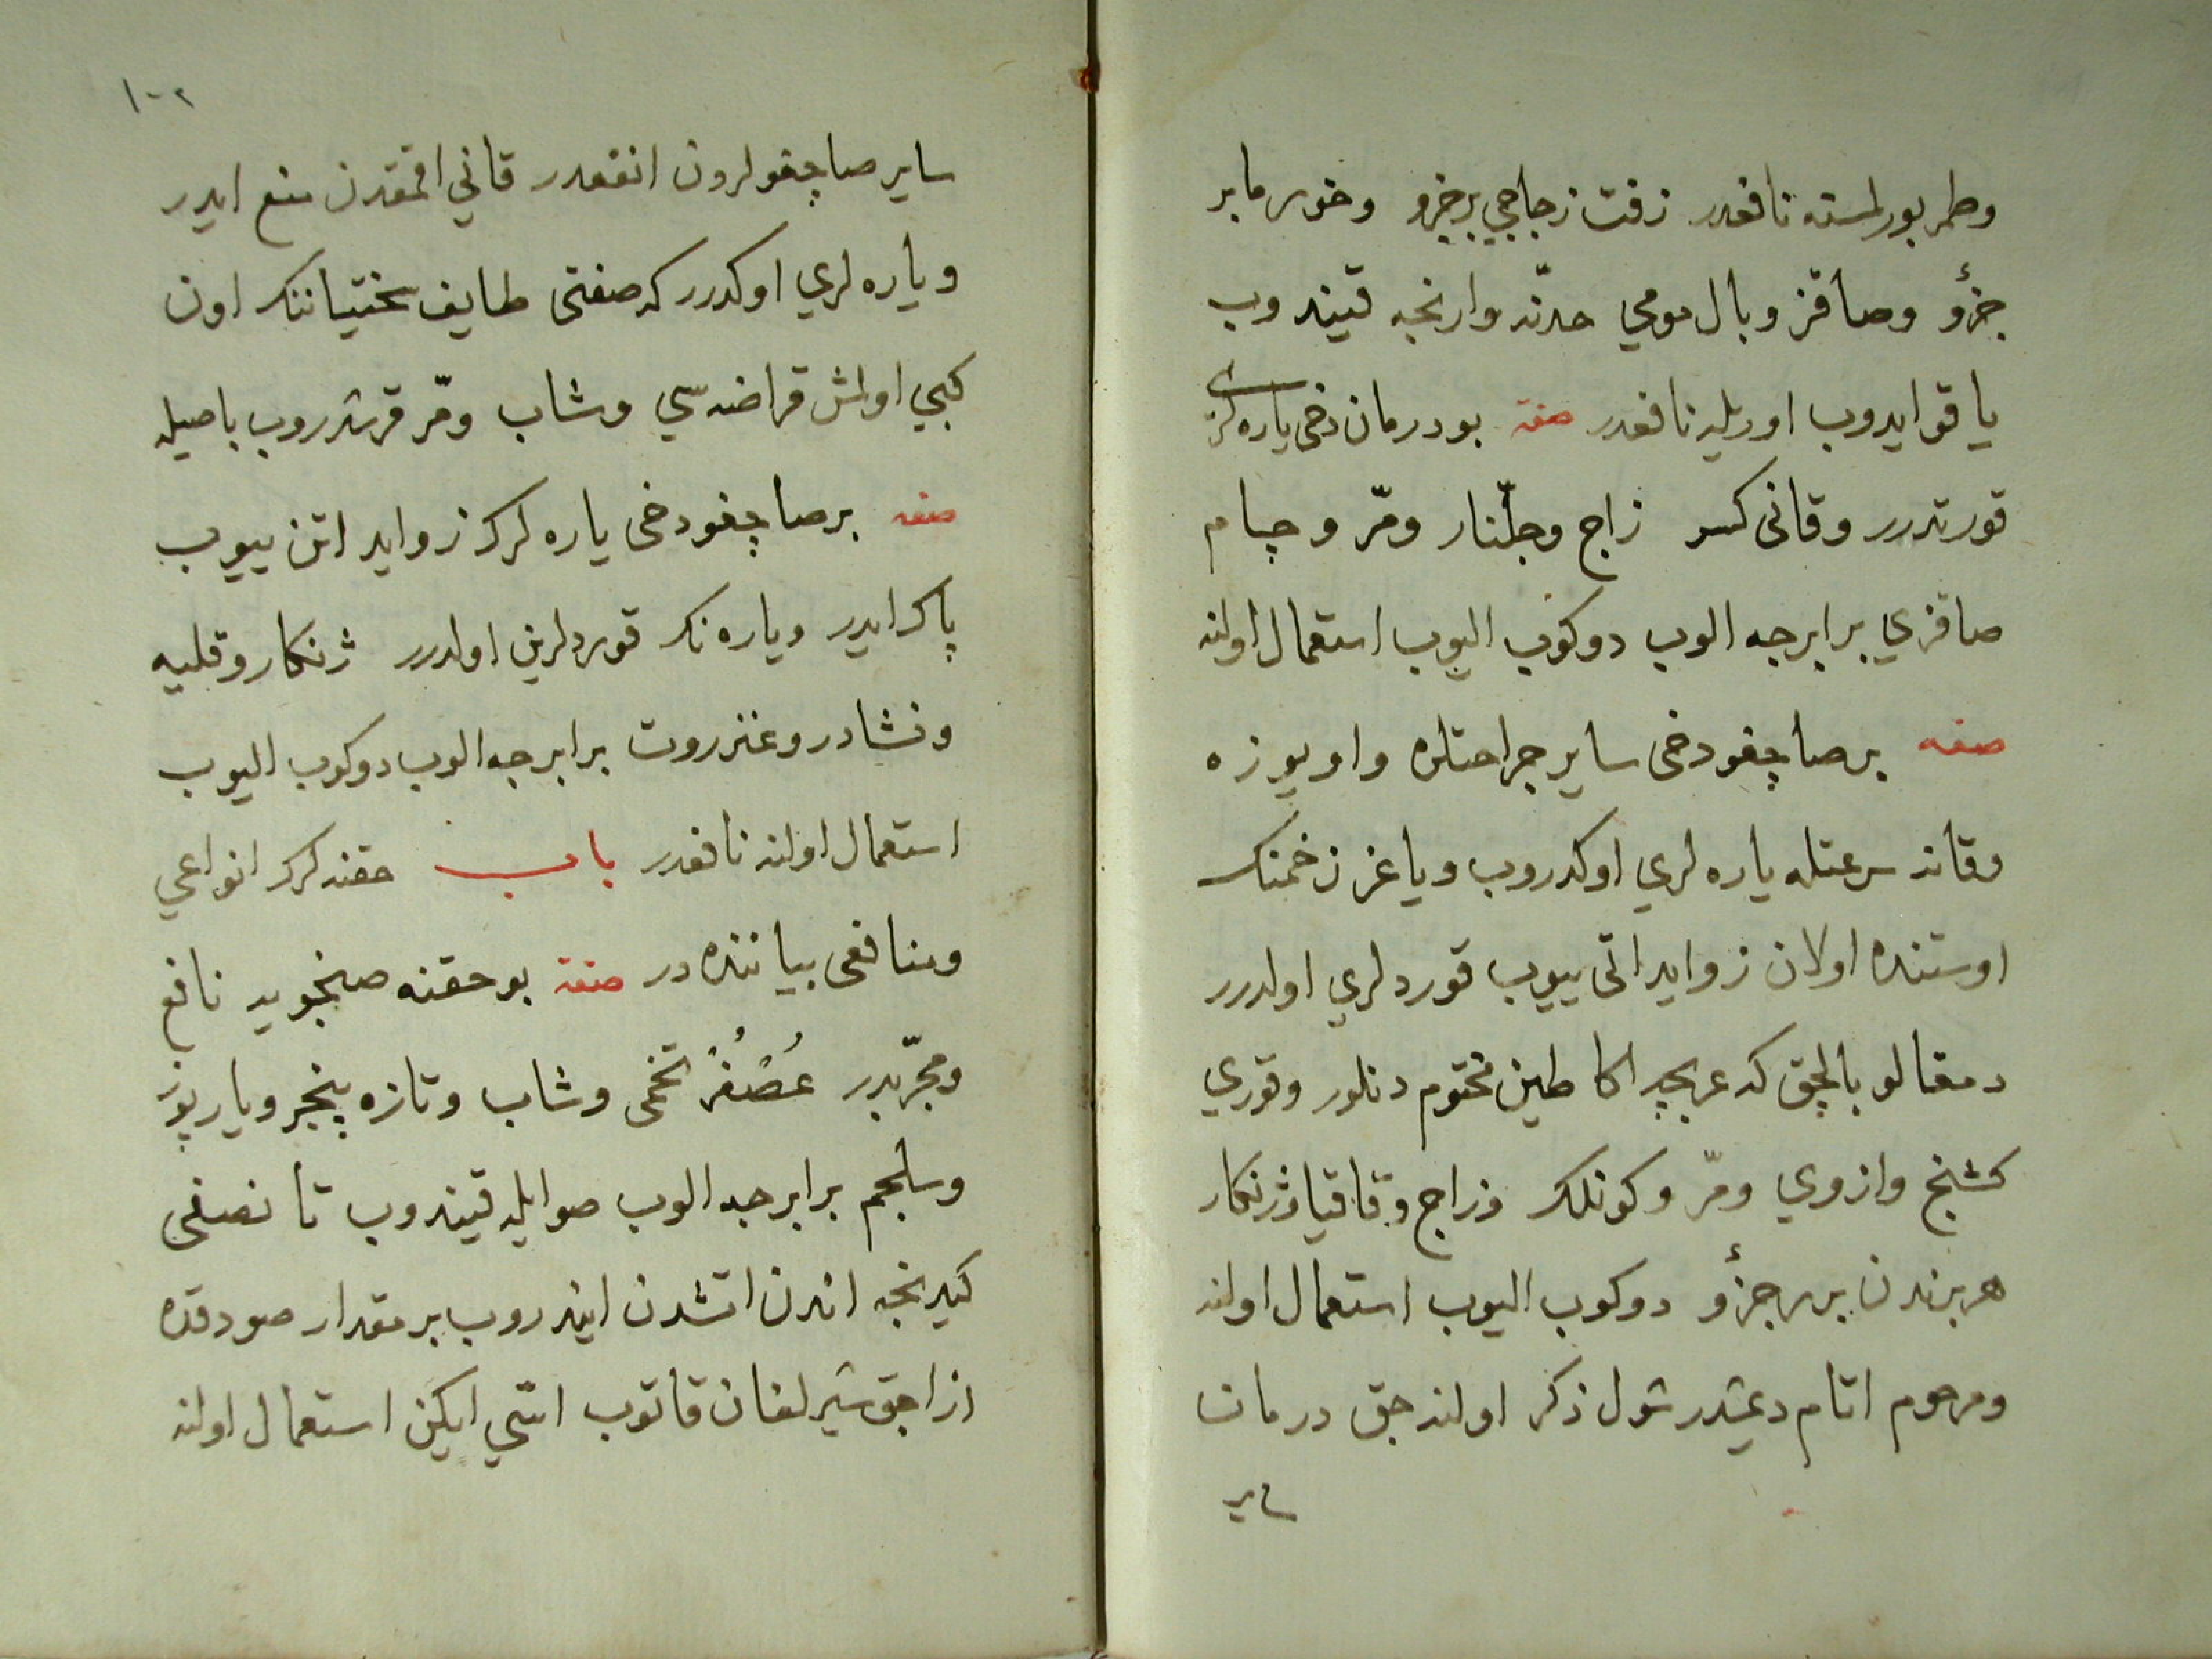 وطمر بورلمسنه نافعدر زفت زجاجي برجزو وخورما بر
جزؤ وصاقز وبال مومي حدّنه وارنجه قيندوب
ياقو ايدوب اوريله نافعدر صفة بو درمان دخى ياره لرى
قورتدرر وقانى كسر زاج وجلّنار ومرّ وچام
صاقزي برابرجه الوب دوكوب اليوب استعمال اولنه
صفه برصاچغو دخى ساير جراحتلره واويوزه
وقانه سرعتله ياره لري اوكدروب وياغز زخمنك
اوستنده اولان زوايد اتى ييوب قوردلري اولدرر
دمغالو بالچق كه عربجه اكا طين مختوم دنلور وقوري
كشنج وازوي ومرّ وكونلك وزاج وقاقيا وژنكار
هربرندن برر جزؤ دوكوب اليوب استعمال اولنه
ومرحوم اتام دىمشدر شول ذكر اولنه جق درمان
ساير
١٠٢
ساير صاچغولردن انفعدر قاني اقمقدن منع ايدر
وياره لري اوكدرر كه صفتى طايف سختياننك اون
كبي اولمش قراضه سي وشاب ومرّ قرشدروب باصيله
صفه برصاچغو دخى ياره لرك زوايد اتن ييوب
پاك ايدر وياره نك قوردلرين اولدرر ژنكار وقليه
ونشادر وعنزروت برابرجه الوب دوكوب اليوب
استعمال اولنه نافعدر باب حقنه لرك انواعي
ومنافعى بياننده در صفة بو حقنه صنجويه نافع
ومجرّبدر عُصْفُرْ تخمى وشاب وتازه پنجر ويارپوز
وسلجم برابرجه الوب صو ايله قيندوب تا نصفى
كيدنجه اندن اتشدن ايندروب بر مقدار صودقده
ازاجق شيرلغان قاتوب اسّي ايكين استعمال اولنه